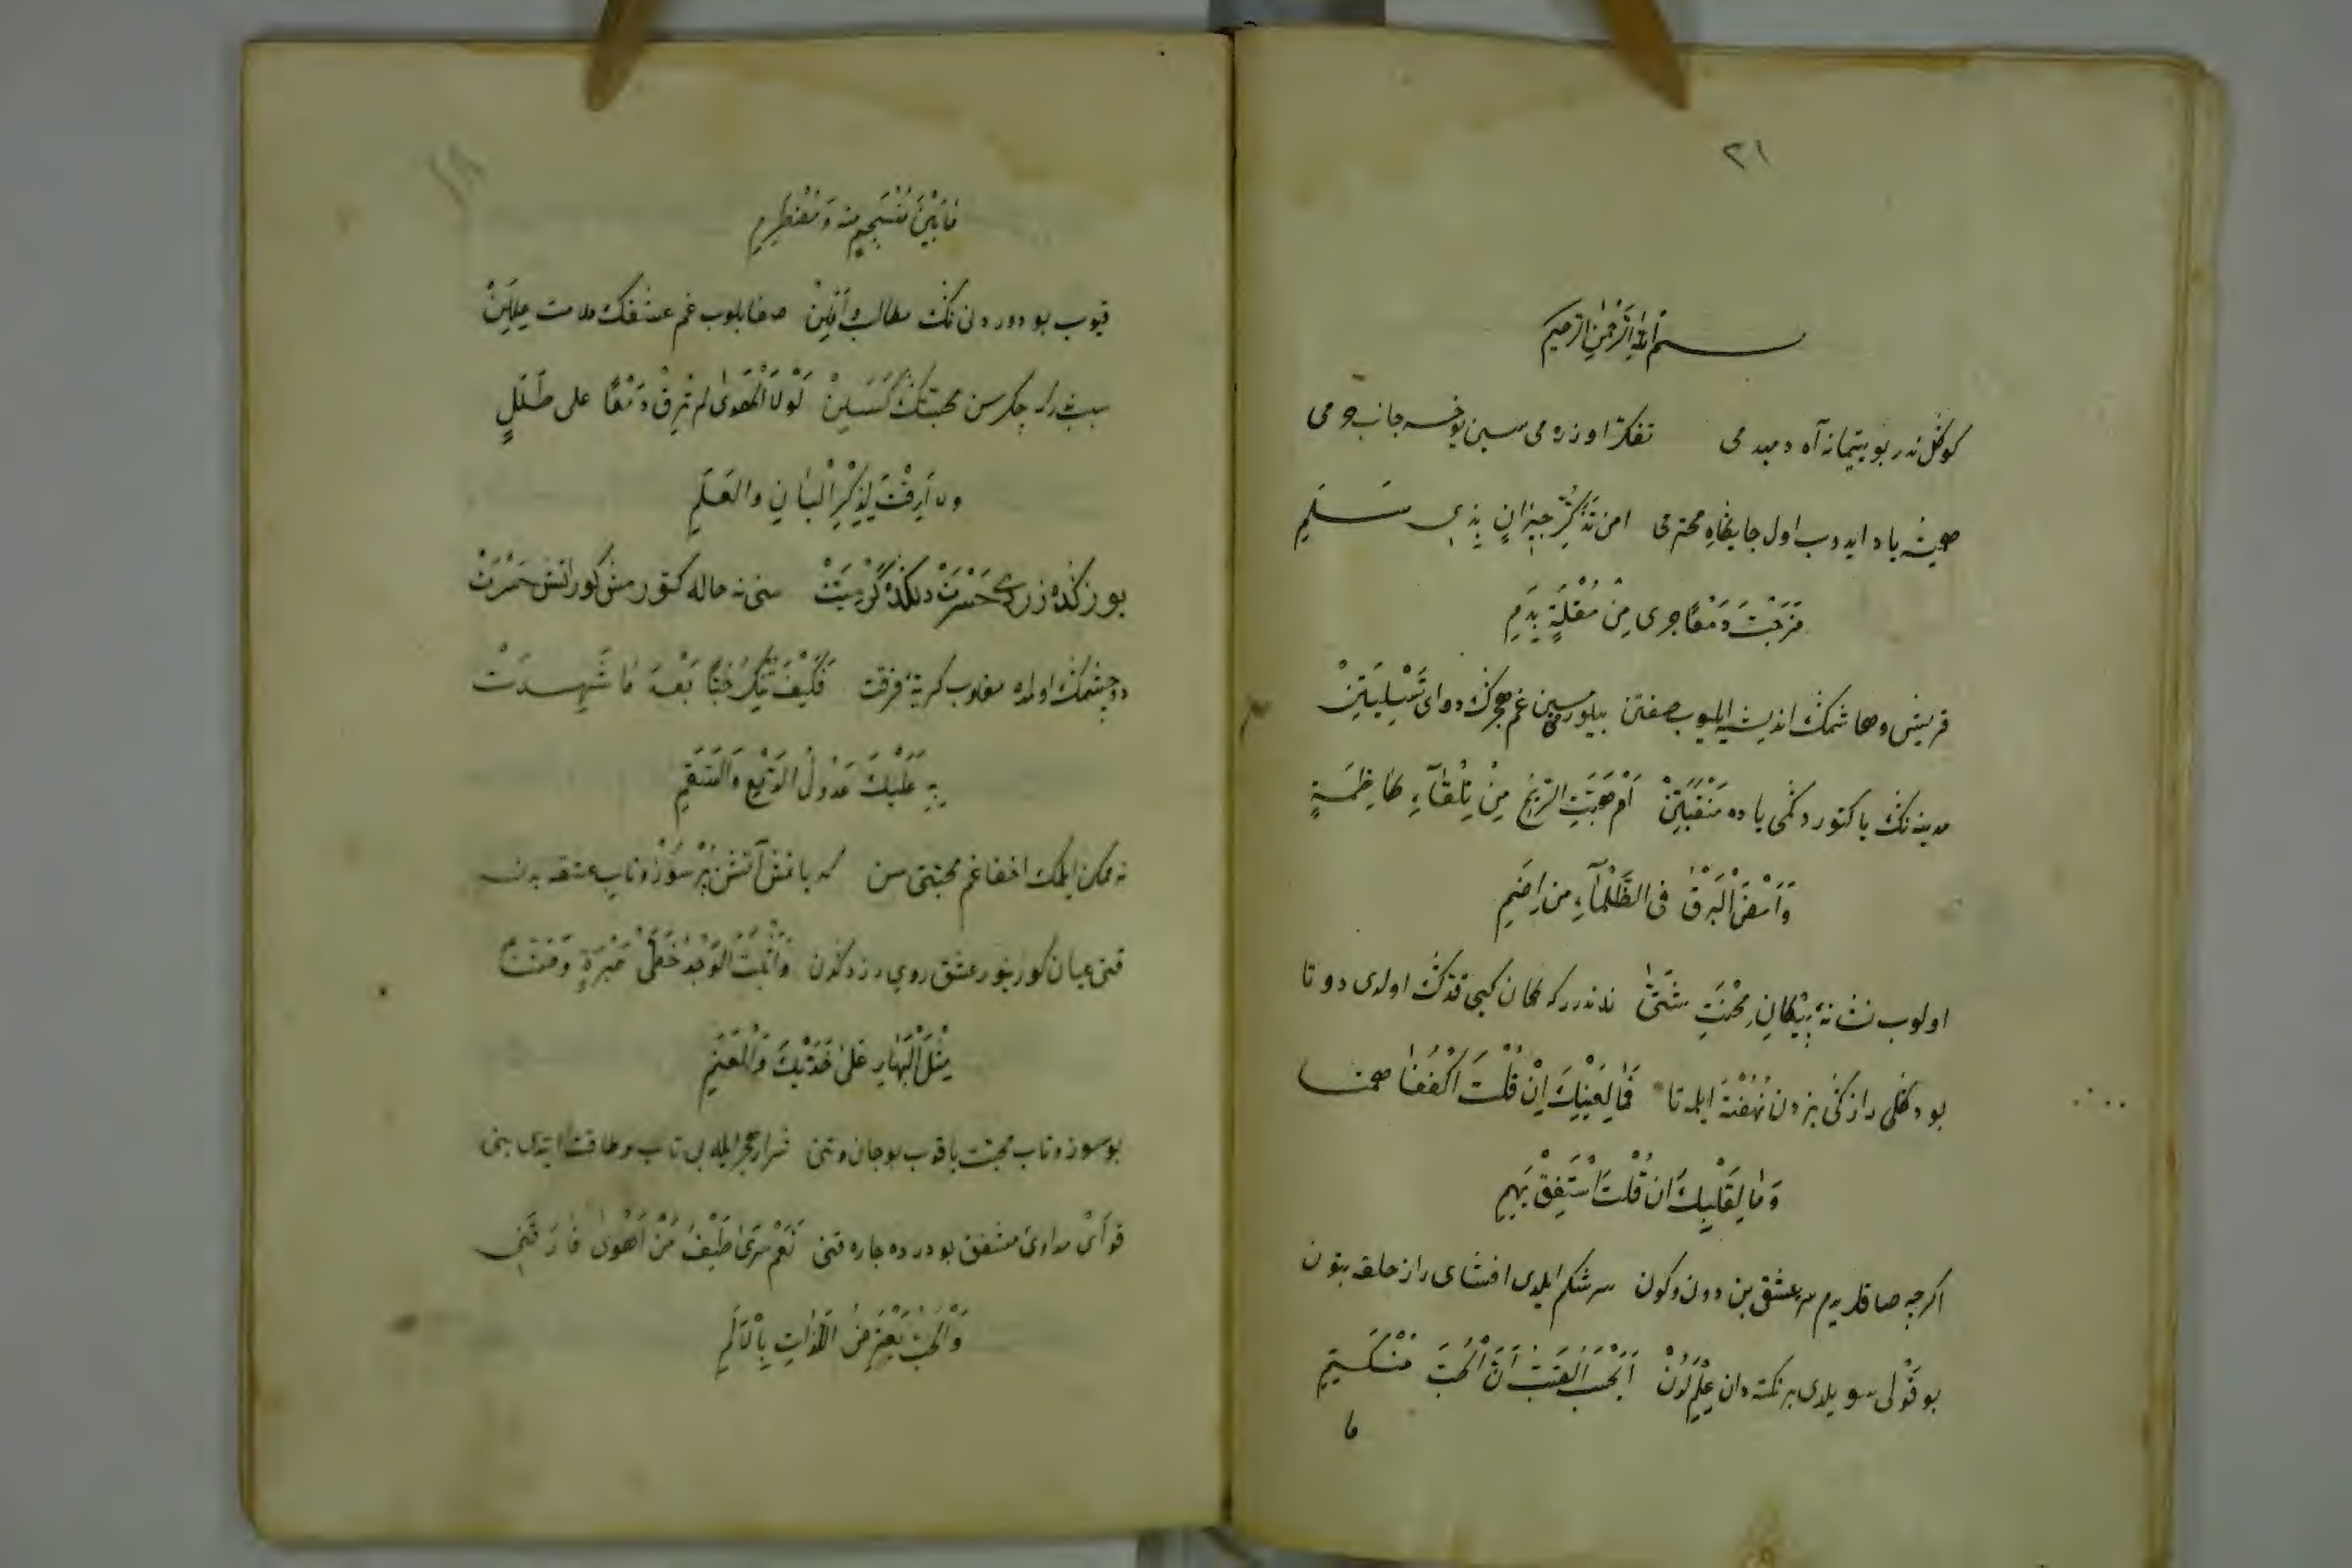 ٢١
بسم الله الرحمن الرحيم
كوڭل ندر بو يتيمانه آه دمبدمى تفكر اوزره مى سين يوخسه جانب حرمى
صحبت ياد ايدوب اول جايگاهِ محترمى امن تَذَكُّرِ جِيْرَانٍ بِذِى سَلَمِ
مَزَجْتَ دَمْعًا جرى مِنْ مُقْلَةٍ بِدَمِ
قريش وهاشمك انديشه ايليوب صفتن بيلورميسين غم هجرك دواى تَسْلِيَتِنْ
مدينه نك يا كتوردكمى ياده مَنْقَبَتِنْ اَمْ هَبَّتِ الرِّيْحُ مِنْ تِلْقَآءِ كاظِمَةٍ
وَاَوْمَضَ الْبَرْقُ فى الظَّلْمآءِ من اِضَمِ
اولوب نشانهٔ پَيْكانِ مِحْنَتِ شَتّٰى ندندرركه كمان كبى قدّڭ اولدى دوتا
بو دڭلى رازكى بزدن نُهُفْتَه ايله تا فَمَا لِعَيْنَيْكَ اِنْ قُلْتَ اكْفُفَا همتا
وَمَا لِقَلْبِكَ ان قُلْتَ اسْتَفِقْ يَهِمِ
اكرچه صاقلريدم سر عشقى بن دون وكون سرشكم ايلدى افشاى راز حلقه بتون
بو قَوْلى سويلدى بر نكته دان عِلْمِ لَدُنْ اَيَحْسَبُ الصَّبُّ اَنَّ الْحُبَّ مُنْكَتِمٌ
ما
١٨
مَا بَيْنَ مُنْسَجِمٍ منه وَمُضْطَرِمِ
قيوب بو دور دنى نڭ مطالب اَمَلِيْن صفا بلوب غم عشقك ملامت
چكرسن محبتڭ كَسَلِيْن لَوْلَا الْهَوٰى لم تُرِقْ دَمْعًا على طَلَلٍ
ولا اَرِقْتَ لِذِكْرِ الْبَانِ والعَلَمِ
يوزڭده زردئ حَسْرَتْ دلڭده سنى نه حاله كتورمش كور آتش
دو چشمڭ اولده مغلوب گريهٔ فرقت فَكَيْفَ تُنْكِرُ حُبًّا بَعْدَ مَا شَهِدَتْ
بِهِ عَلَيْكَ عُدُولُ الدَّمْعِ وَالسَّقَمِ
نه ممكن ايلمك اخفا غم محبتى سن كه يانمش آتش پُرْ سُوْز و تاب عشقه بدن
قنى عيان كورينور عشق روى زردڭدن وَاَثْبَتَ الْوَجْدُ خَطَّىْ عَبْرَةٍ وَضَنًى
مِثْلَ الْبَهَارِ عَلٰى خَدَّيْكَ وَالْعَنَمِ
بو سوز و تاب محبت ياقوب بو جان و تنى شرار هجر ايله بى تاب و طاقت ايتدى بنى
قو اَىْ مداوئ مشفق بو درده چاره قنى نَعَمْ سَرٰى طَيْفُ مَنْ اَهْوٰى فَاَرَّقَنِى
وَالْحُبُّ يَعْتَرِضُ اللَّذَّاتِ بِالْاَلَمِ